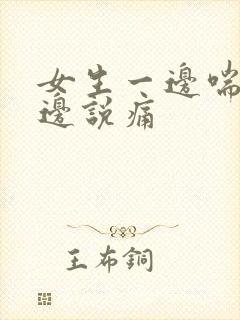 女生一邊喘
邊說痛
王布銅